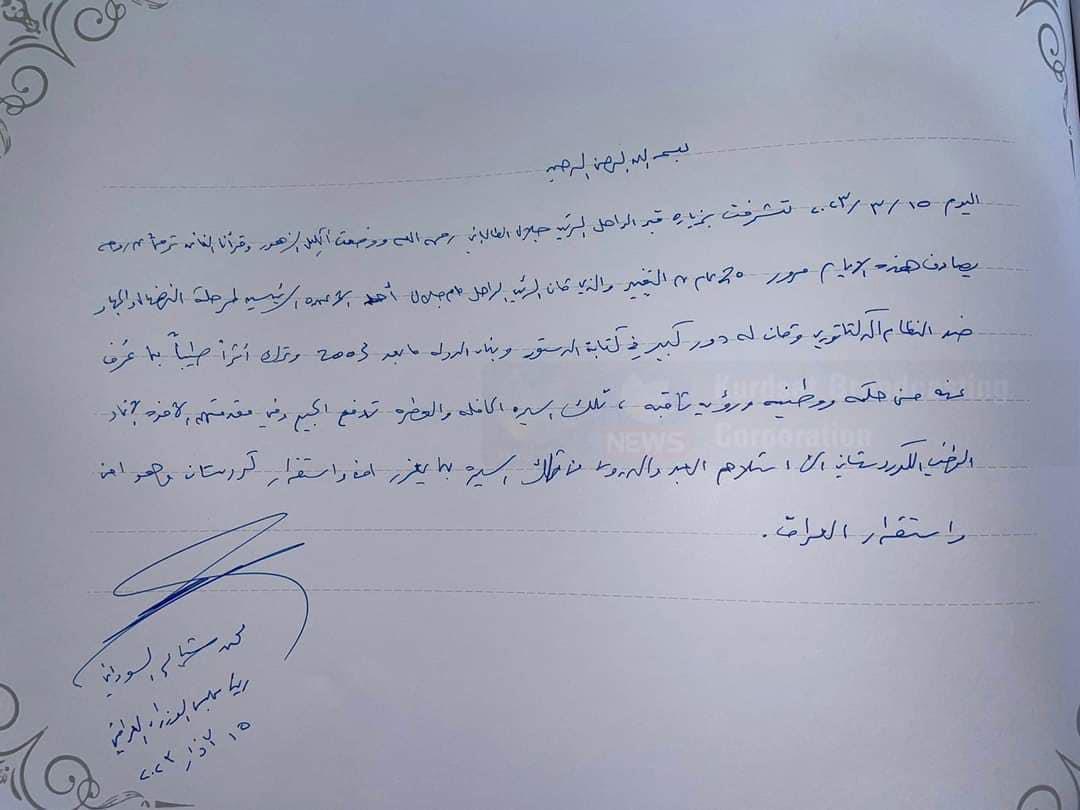 بسم الله الرحمن الرحيم
اليوم ١٥/٣/٢٠٢٣ تشرفت بزيارة قبر الراحل الرئيس جلال الطالباني رحمه الله ووضعت اكليل الزهور وقرأنا الفاتحة ترحماً على روحه
يصادف هذه الايام مرور 20 عام على التغيير والذي كان الرئيس الراحل مام جلال أحد الاعمدة الرئيسيه لمرحلة النضال والجهاد
ضد النظام الدكتاتوري وكان له دور كبير في كتابة الدستور وبناء الدوله مابعد 2003 وترك أثراً طيباً بما عُرف
عنه من حكمه ووطنيه ورؤيه ثاقبه ، تلك السيره الحافله والعطره تدفع الجميع وفي مقدمتهم الاخوه الاتحاد
الوطني الكوردستاني الى استلام العبر والدروس من تلك السيره بما يعزز امن واستقرار كوردستان وهو امن
واستقرار العراق.
محمد شياع السوداني
رئيس مجلس الوزراء العراقي
١٥ آذار ٢٠٢٣
Kurdsat Broadcasting
NEWS Corporation